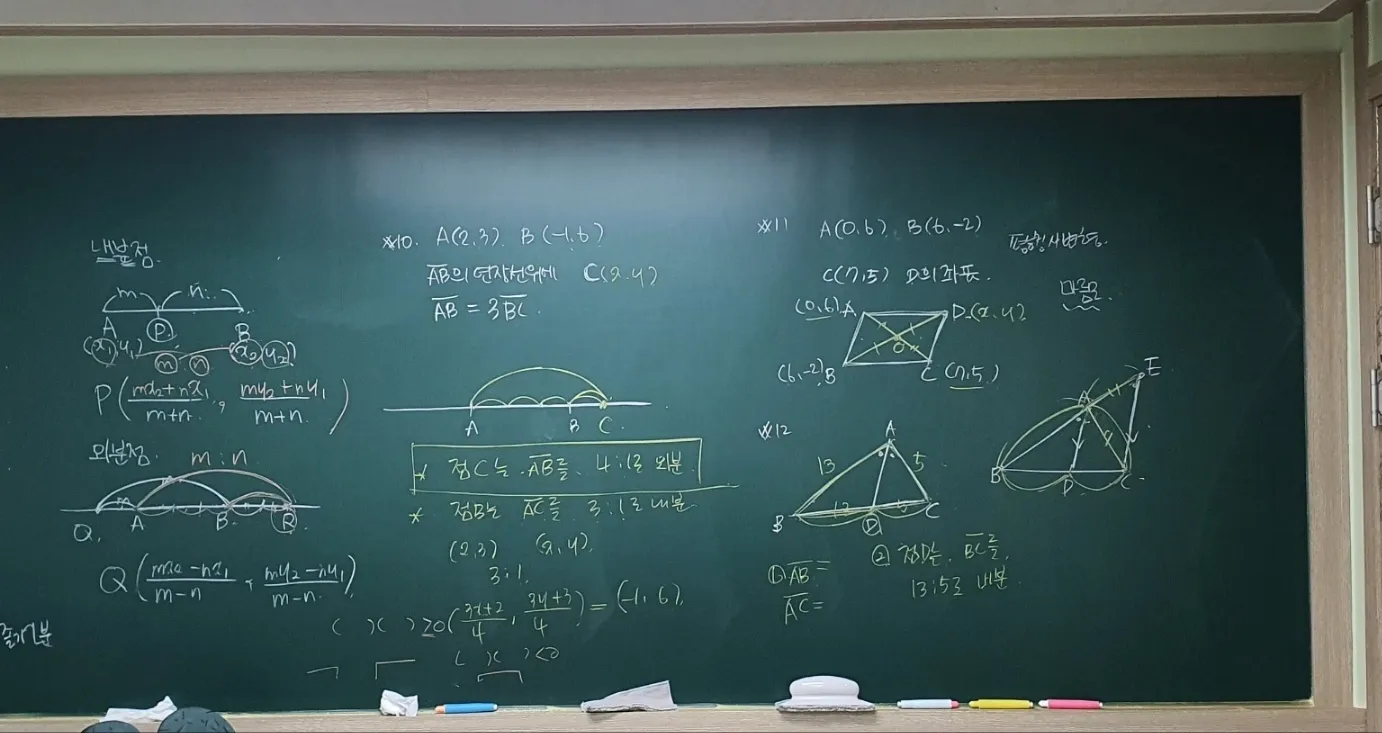 내분점.
m n
A P B
(x₁, y₁) (x₂, y₂)
m n
P( (mx₂+nx₁)/(m+n), (my₂+ny₁)/(m+n) )
외분점. m : n
Q. A B. R
Q( (mx₂-nx₁)/(m-n), (my₂-ny₁)/(m-n) )
※10. A(2,3), B(-1,6)
AB의 연장선위에 C(x,y)
AB = 3BC.
A B C.
* 점C는 AB를 4:1로 외분.
* 점B는 AC를 3:1로 내분.
(2,3) (x,y).
3:1.
( (3x+2)/4, (3y+3)/4 ) = (-1, 6).
( )( ) ≥0
( )( ) <0
※11 A(0,6), B(6,-2)
C(7,5) D의 좌표.
평행사변형.
마름모.
(0,6) A D(x,y)
O
(6,-2) B C (7,5)
※12
A
13 5
13 5
B D C
① AB =
AC =
② 점D는 BC를
13:5로 내분.
E
A
B D C